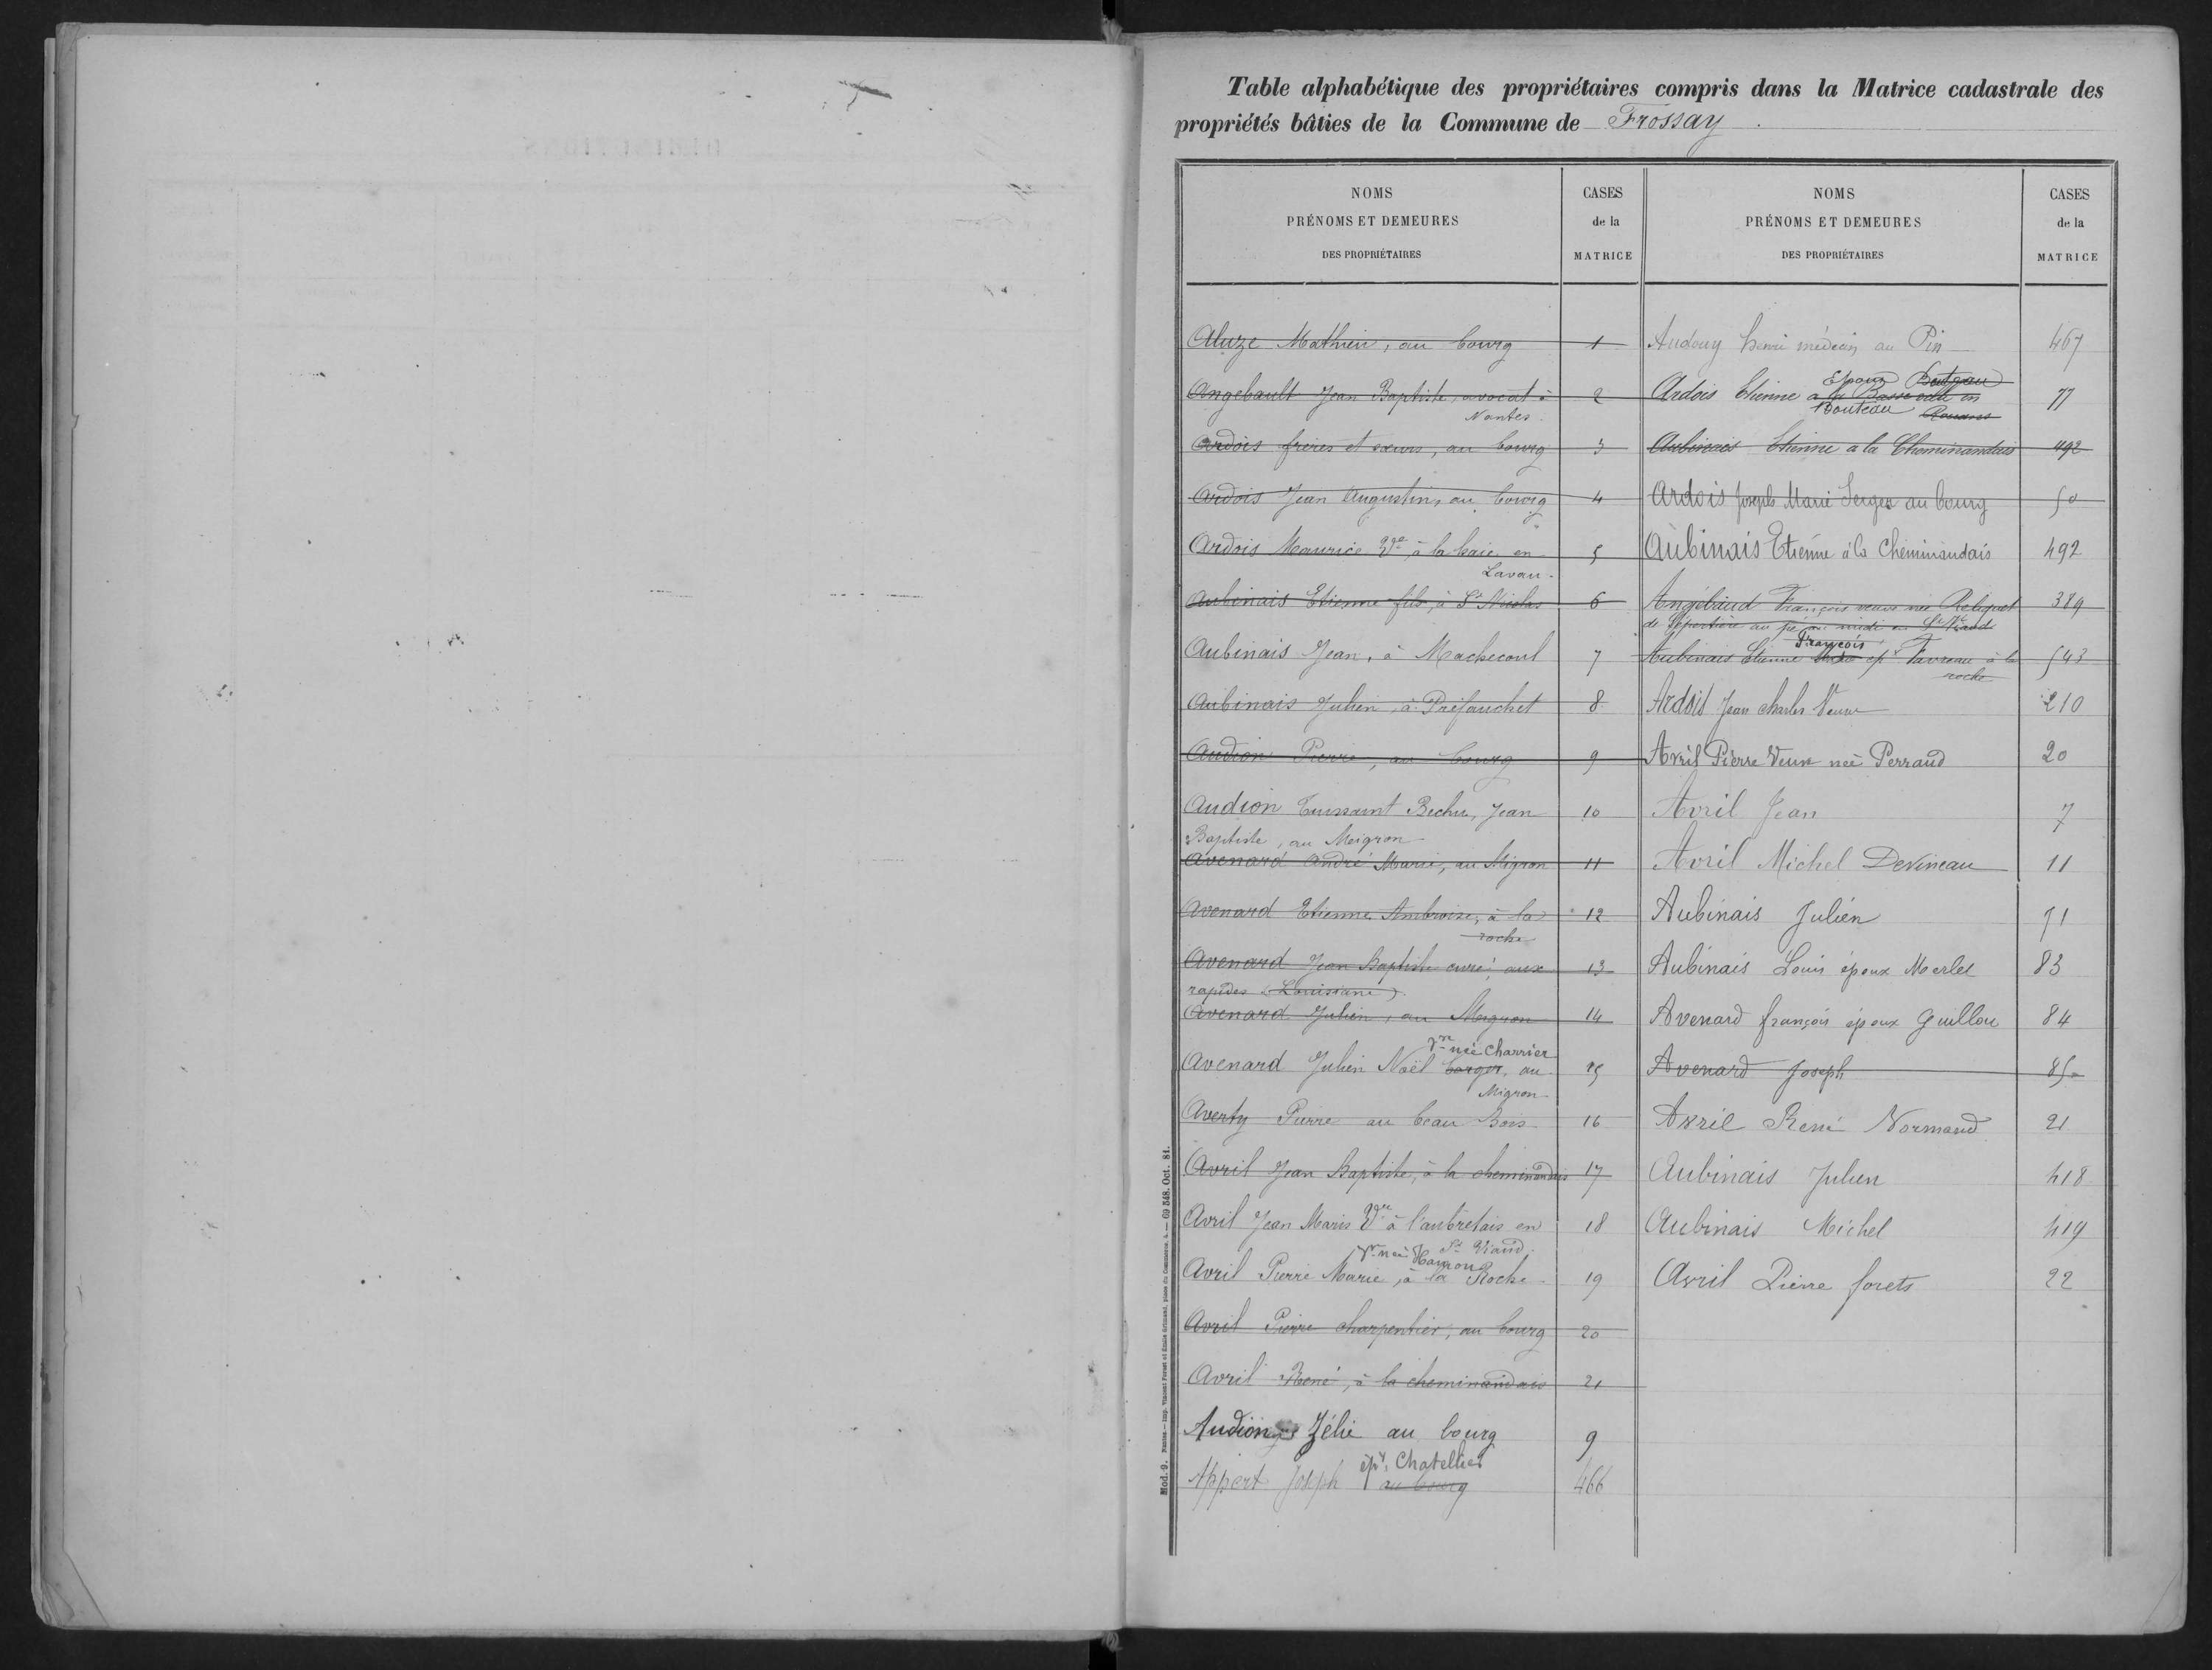 Table alphabétique des propriétaires compris dans la Matrice cadastrale des
propriétés bâties de la Commune de Frossay
NOMS
PRÉNOMS ET DEMEURES
DES PROPRIÉTAIRES
CASES
de la
MATRICE
Aluze Mathieu, au bourg 1
Angebault Jean Baptiste, avocat à 2
Nantes.
Ardois frères et sœurs, au bourg 3
Ardois Jean Augustin, au bourg 4
Ardois Maurice Vve, à la haie en 5
Lavau.
Aubinais Etienne fils, à St Nicolas 6
Aubinais Jean, à Machecoul 7
Aubinais Julien, à Préfauchet 8
Audion Pierre, au bourg 9
Audion Toussaint Bechu, Jean 10
Baptiste, au Meigron
Avenard André Marie, au Migron 11
Avenard Etienne Ambroise, à la 12
roche
Avenard Jean Baptiste curé, aux 13
rapides (Louisiane)
Avenard Julien, au Megron 14
Vve née Charrier
Avenard Julien Noël, au 15
Migron
Averty Pierre au beau Bois 16
Avril Jean Baptiste, à la cheminandais 17
Avril Jean Marie Vve à l'aubretais en 18
St Viaud.
Vve née Hamon
Avril Pierre Marie, à la Roche 19
Avril Pierre charpentier, au bourg 20
Avril René, à la cheminandais 21
Audion Zélie au bourg 9
épx Chatellier
Appert Joseph au bourg 466
NOMS
PRÉNOMS ET DEMEURES
DES PROPRIÉTAIRES
CASES
de la
MATRICE
Audouy henri médecin au Pin 467
Epoux
Ardois Etienne à la Basse en 77
Bouteau Rouans
Aubinais Etienne à la Cheminandais 492
Ardois Joseph Marie Serges au bourg 50
Aubinais Etienne à la Cheminandais 492
Angébaud François veuve née Reliquet 389
François
Aubinais Etienne épx Favreau à la 543
roche
Ardois Jean Charles Veuve 210
Avril Pierre Veuve née Perraud 20
Avril Jean 7
Avril Michel Devineau 11
Aubinais Julien 71
Aubinais Louis époux Merlet 83
Avenard françois époux Guillou 84
Avenard Joseph 85
Avril René Normand 21
Aubinais Julien 418
Aubinais Michel 419
Avril Pierre forets 22